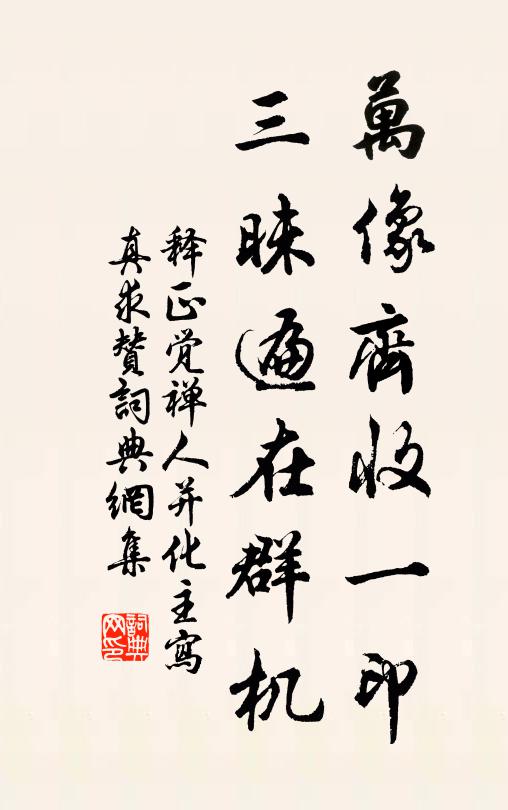 萬像齊收一印
三昧遍在群机
释正觉禅人并化主寫
真求赞詞典網集
詞典网印